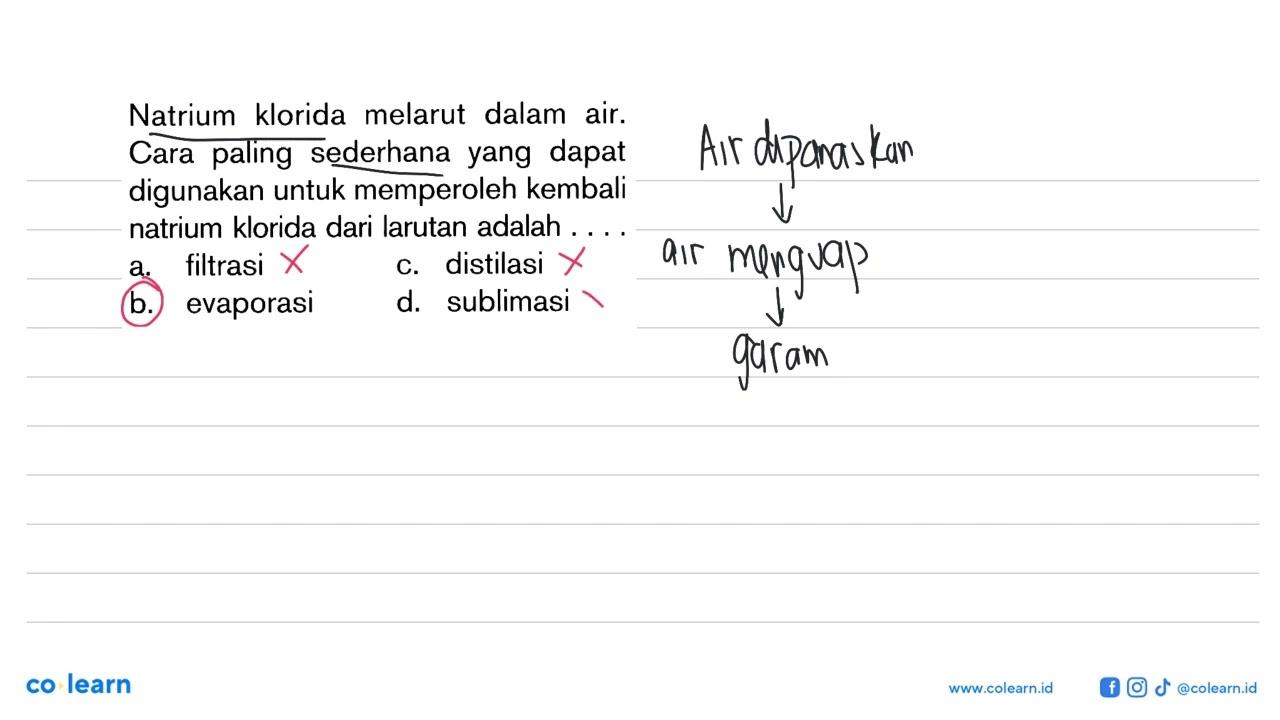 Natrium klorida melarut dalam air.
Cara paling sederhana yang dapat
digunakan untuk memperoleh kembali
natrium klorida dari larutan adalah . . . .
a. filtrasi c. distilasi
b. evaporasi d. sublimasi
Air dipanaskan
↓
air menguap
↓
garam
co learn
www.colearn.id @colearn.id